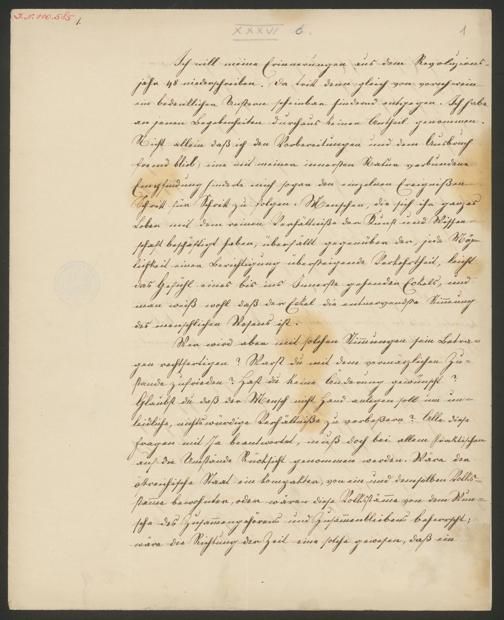 I. N. 100.555
1.
XXXVI 6.
1
Ich will meine Erinnerungen aus dem Revoluzions-
jahr 48 niederschreiben. Da tritt denn gleich von vorn herein
ein bedenklicher Umstand scheinbar hindernd entgegen. Ich habe
an jenen Begebenheiten durchaus keinen Antheil genommen.
Nicht allein daß ich den Vorbereitungen und dem Ausbruch
fremd blieb, eine mit meiner innersten Natur verbundene
Empfindung hinderte mich sogar den einzelnen Ereignißen
Schritt für Schritt zu folgen. Menschen, die sich ihr ganzes
Leben mit dem reinen Verhältniße der Kunst und Wissen-
schaft beschäftigt haben, überfällt gegenüber der, jede Mög-
lichkeit einer Berichtigung übersteigende Verkehrtheit, leicht
das Gefühl eines bis ins Innerste gehenden Eckels, und
man weiß wohl daß der Eckel die entnervendste Stimmung
des menschlichen Wesens ist.
Wer wird aber mit solchen Stimmungen sein Betra-
gen rechtfertigen? Warst du mit dem vormärzlichen Zu-
stande zufrieden? Hast du keine Änderung gewünscht?
Glaubst du daß der Mensch nicht Hand anlegen soll um un-
leidliche, nichtswürdige Verhältniße zu verbeßern? Alle diese
Fragen mit Ja beantwortet, muß doch bei allem Praktischen
auf die Umstände Rücksicht genommen werden. Wäre der
östreichische Staat ein kompakter, von ein und demselben Volks-
stamme bewohnter, oder wären diese Volksstämme von dem Wun-
sche des Zusammengehörens und Zusammenbleibens beherrscht;
wäre die Richtung der Zeit eine solche gewesen, daß ein